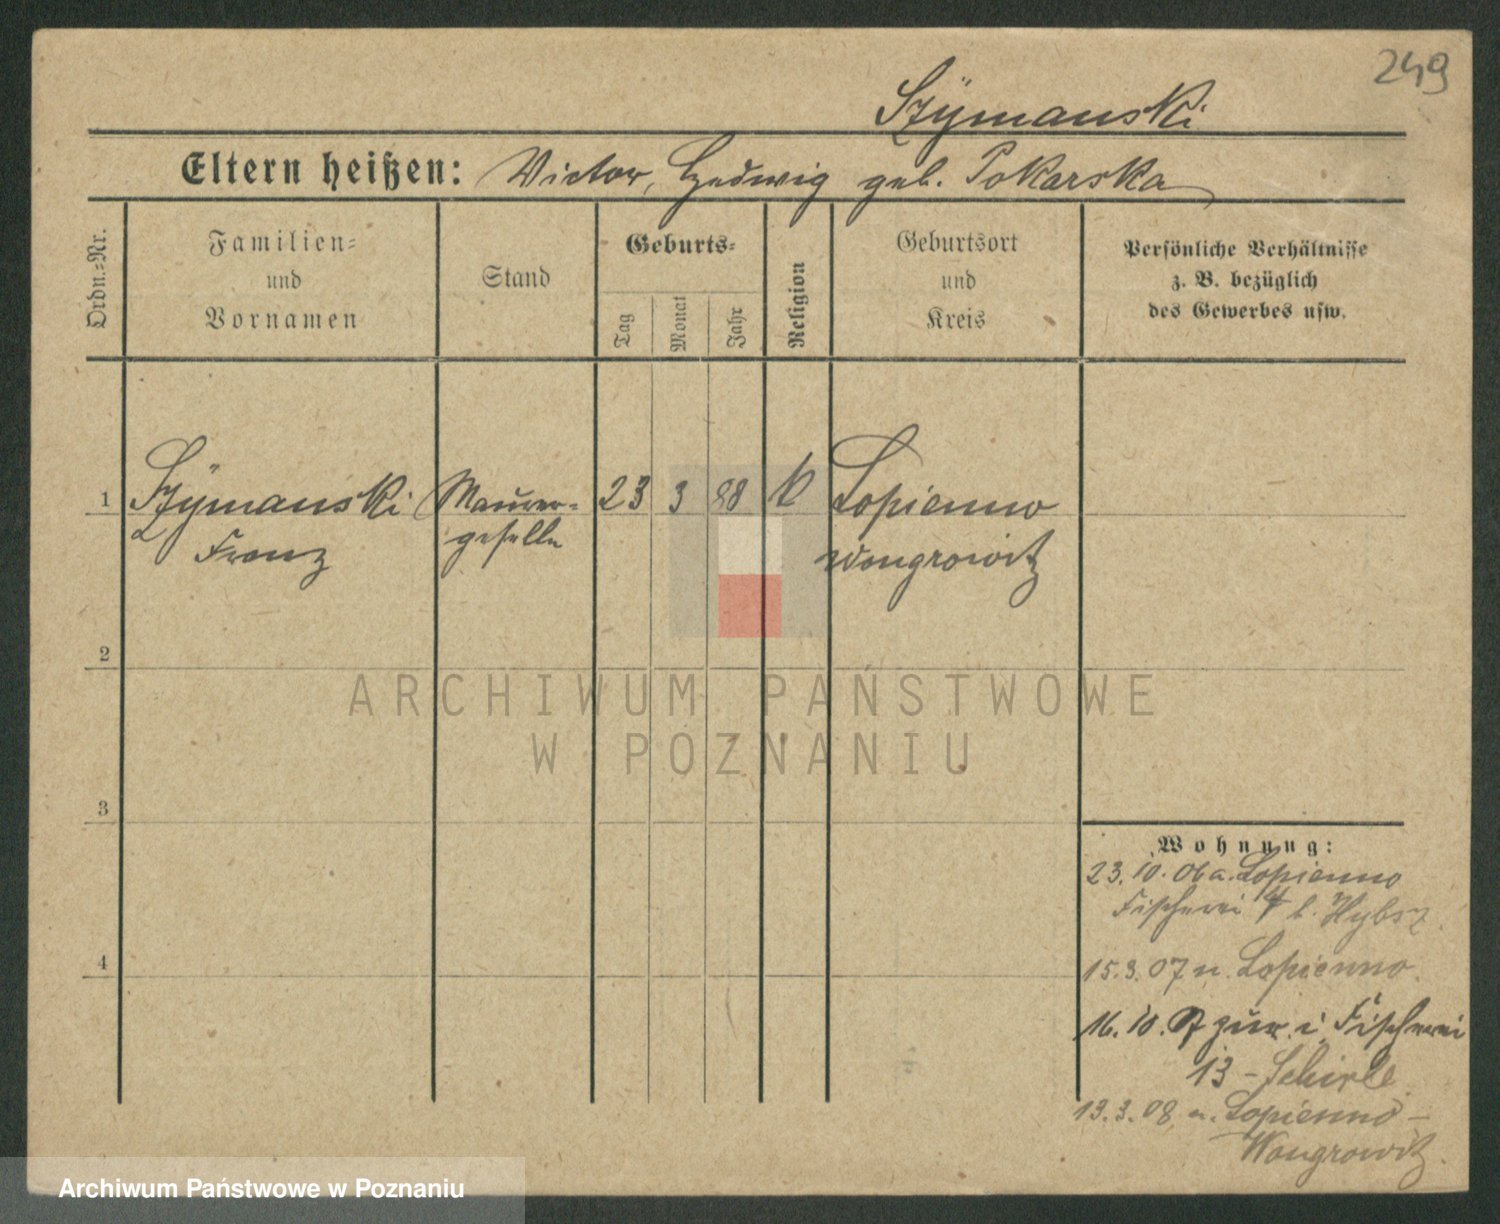 249
Szÿmanski
Eltern heißen: Victor, Hedwig geb. Pokarska
Ordn.=Nr.
Familien=
und
Vornamen
Stand
Geburts=
Tag
Monat
Jahr
Religion
Geburtsort
und
Kreis
Persönliche Verhältnisse
z. B. bezüglich
des Gewerbes usw.
1 Szÿmanski Maurer= 23 3 88 k Lopienno
Franz geselle Wongrowitz
2
3
4
Wohnung:
23. 10. 06 a. Lopienno
Fischerei 14 b. Hybsz
15. 3. 07 n. Lopienno.
16. 10. 07 zur. i. Fischerei
13 -
13. 3. 08 n. Lopienno -
Wongrowitz.
ARCHIWUM PAŃSTWOWE
W POZNANIU
Archiwum Państwowe w Poznaniu